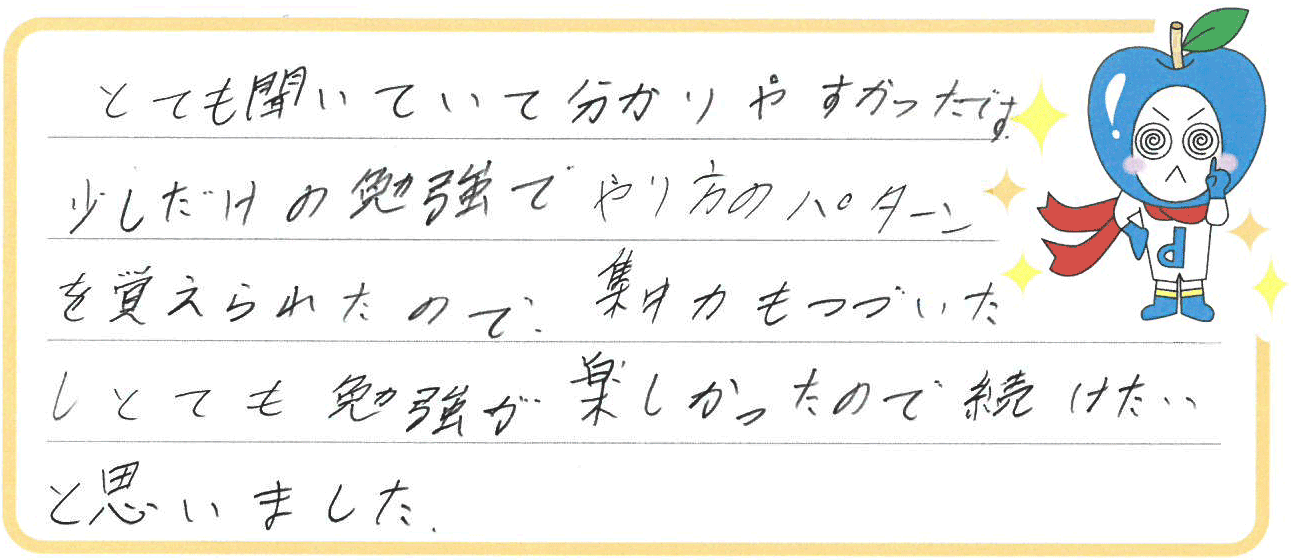 とても聞いていて分かりやすかったです。
少しだけの勉強でやり方のパターン
を覚えられたので、集中力もつづいた
しとても勉強が楽しかったので続けたい
と思いました。
d